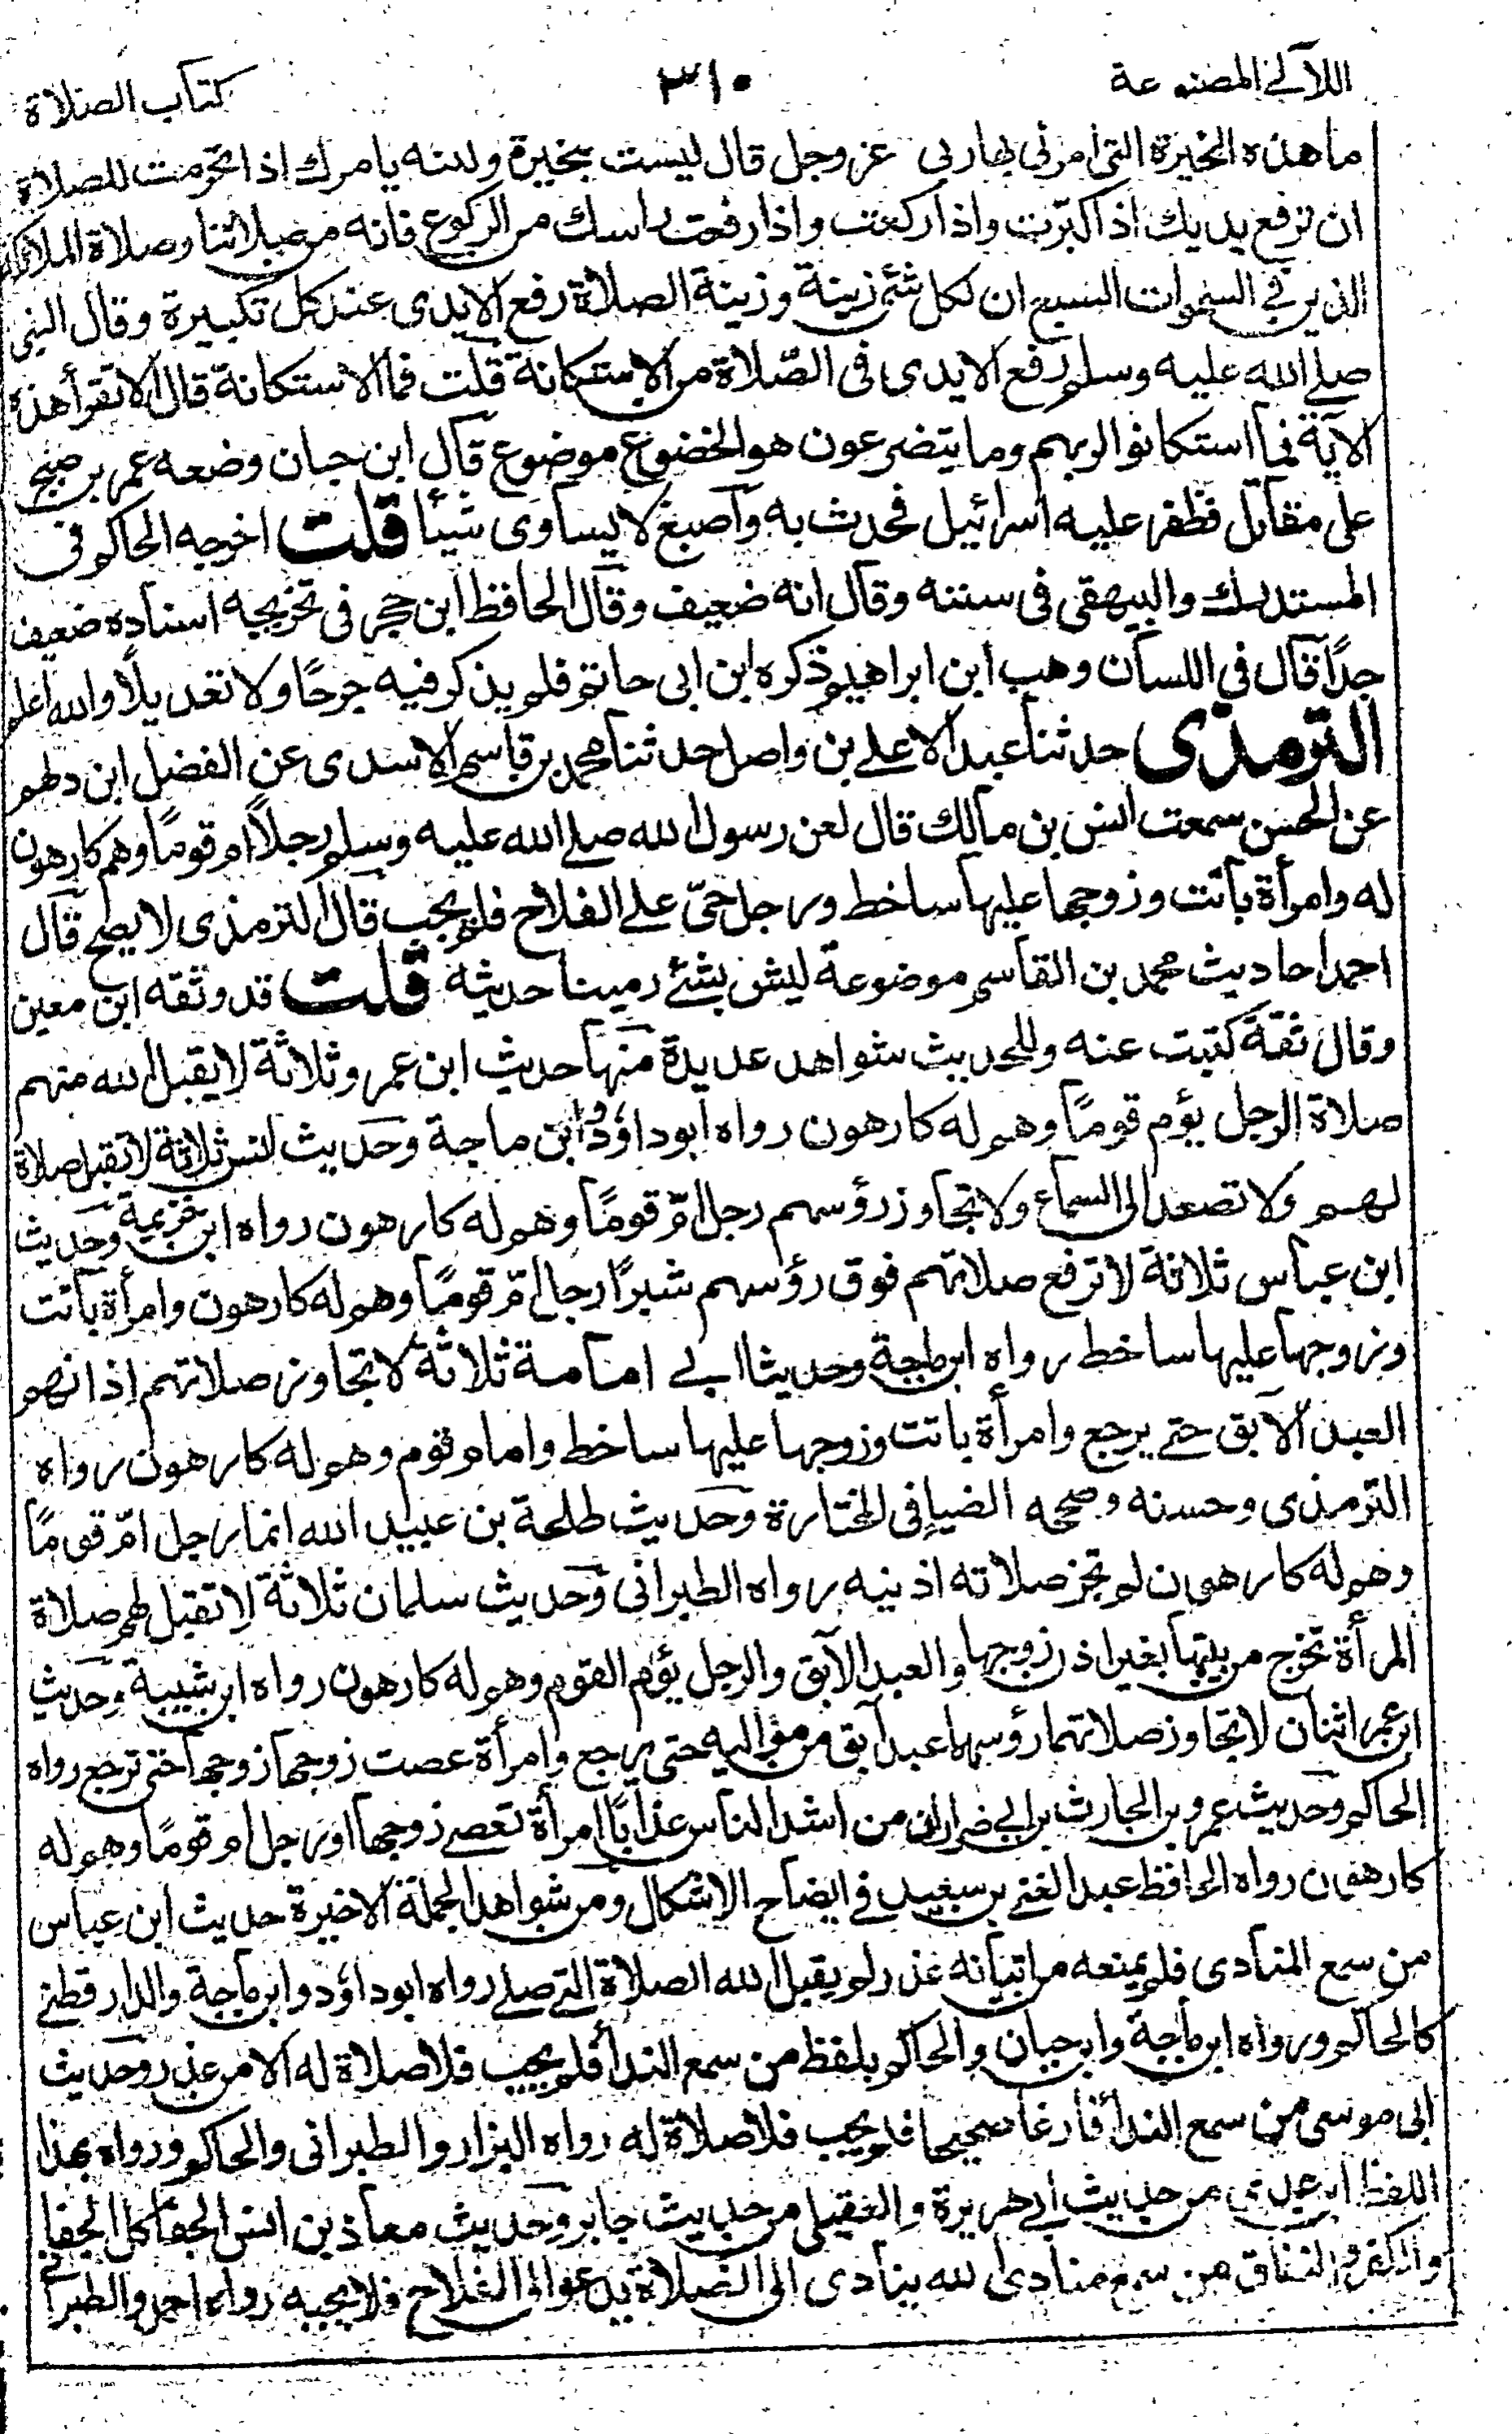 اللآلئ المصنوعة ٣١٠ كتاب الصلاة
ما هذه النحيرة التى امرنى بها ربى عزوجل قال ليست بنحيرة ولكنه يامرك اذا تحرمت للصلاة
ان ترفع يديك اذا كبّرت واذا ركعت واذا رفعت راسك من الركوع فانه من صلاتنا وصلاة الملائكة
الذين فى السموات السبع ان لكل شئ زينة وزينة الصلاة رفع الايدى عند كل تكبيرة وقال النبى
صلے الله عليه وسلم رفع الايدى فى الصّلاة من الاستكانة قلت فما الاستكانة قال الا تقرأ هذه
الآية فما استكانوا لربهم وما يتضرعون هو الخضوع موضوع قال ابن حبان وضعه عمر بن صبح
على مقاتل فظفر عليه اسرائيل فحدث به وأصبغ لا يساوى شيئا قلت اخرجه الحاكم فى
المستدرك والبيهقى فى سننه وقال انه ضعيف وقال الحافظ ابن حجر فى تخريجه اسناده ضعيف
جدًا قال فى اللسان وهب ابن ابراهيم ذكره ابن ابى حاتم فلم يذكر فيه جرحًا ولا تعديلًا والله اعلم
الترمذى حدثنا عبد الاعلے بن واصل حدثنا محمد بن قاسم الاسدى عن الفضل ابن دلهم
عن الحسن سمعت انس بن مالك قال لعن رسول الله صلے الله عليه وسلم رجلاً ام قومًا وهم كارهون
له وامرأة باتت وزوجها عليها ساخط ورجل حىّ علے الفلاح فلم يجب قال الترمذى لا يصح قال
احمد احاديث محمد بن القاسم موضوعة ليس بشئ رمينا حديثه قلت قد وثقه ابن معين
وقال ثقة كتبت عنه وللحديث شواهد عديدة منها حديث ابن عمر وثلاثة لا يقبل الله منهم
صلاة الرجل يؤم قومًا وهم له كارهون رواه ابوداؤد وابن ماجة وحديث انس ثلاثة لا تقبل صلاة
لهم ولا تصعد الى السماء ولا تجاوز رؤسهم رجل امّ قومًا وهم له كارهون رواه ابن خزيمة وحديث
ابن عباس ثلاثة لا ترفع صلاتهم فوق رؤسهم شبرًا رجل امّ قومًا وهم له كارهون وامرأة باتت
وزوجها عليها ساخط رواه ابن ماجة وحديث ابے امامة ثلاثة لا تجاوز صلاتهم اذانهم
العبد الآبق حتے يرجع وامرأة باتت وزوجها عليها ساخط وامام قوم وهم له كارهون رواه
الترمذى وحسنه وصححه الضيا فى المختارة وحديث طلحة بن عبيد الله انما رجل امّ قومًا
وهم له كارهون لم تجز صلاته اذنيه رواه الطبرانى وحديث سلمان ثلاثة لا تقبل لهم صلاة
المرأة تخرج من بيتها بغير اذن زوجها والعبد الآبق والرجل يؤم القوم وهم له كارهون رواه ابن شيبة وحديث
ابن عمر اثنان لا تجاوز صلاتهما رؤسهما عبد آبق من مواليه حتى يرجع وامرأة عصت زوجها زوجها حتى ترجع رواه
الحاكم وحديث عمرو بن الحارث بن ابى ضرار ان من اشد الناس عذابًا امرأة تعصے زوجها ورجل ام قومًا وهم له
كارهون رواه الحافظ عبد الغنے بن سعيد فى ايضاح الاشكال ومن شواهد الجملة الاخيرة حديث ابن عباس
من سمع المنادى فلم يمنعه من اتيانه عذر لم يقبل الله الصلاة التے صلے رواه ابوداؤد وابن ماجة والدارقطنے
كالحاكم ورواه ابن ماجة وابن حبان والحاكم بلفظ من سمع النداء فلم يجب فلا صلاة له الا من عذر وحديث
ابى موسى من سمع النداء فارغا صحيحا فلم يجب فلا صلاة له رواه البزار والطبرانى والحاكم ورواه بهذا
اللفظ ابن عدى من حديث ابے هريرة والعقيلى من حديث جابر وحديث معاذ بن انس الجفا كل الجفا
والكفر والنفاق من سمع منادى الله ينادى الى الصلاة يدعو الى الفلاح فلا يجيبه رواه احمد والطبرانے